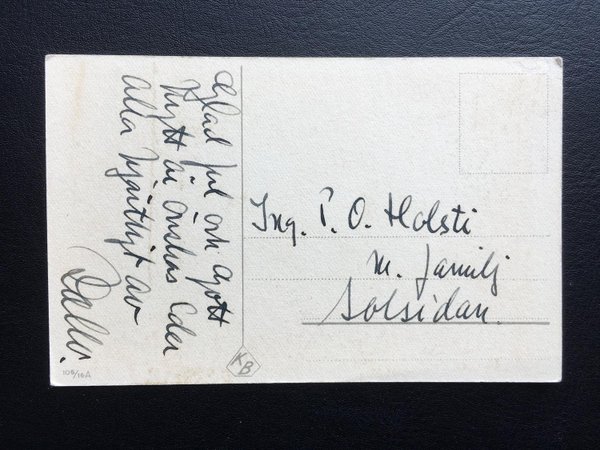 Glad jul och Gott
Nytt år önskas Eder
alla hjärtligt av
Ing. P. O. Holsti
m. familj
Solsidan.
KB
106/10A